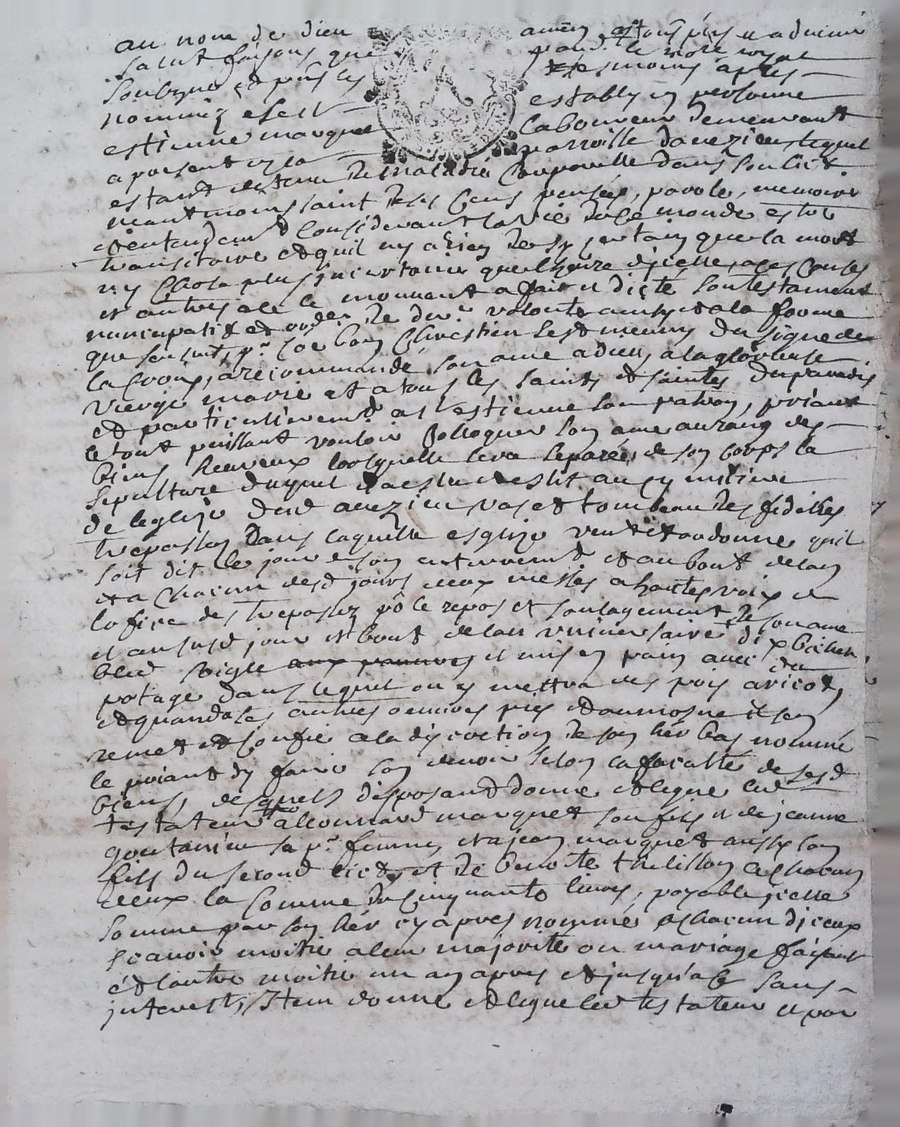 au nom de dieu amen a tous presents et a advenir
salut faisons que pard. le notre royal
soubzigne et puis les tesmoins apres
nommez c'est estably en personne
estienne marquet laboureur demeurant
a present en la parroisse d'avezieu lequel
estant destenu de maladie corporelle dans son lict
neantmoins saint de ses sens pensée, parole, memoire
et entendem.t considerant la vie de ce monde estre
transitoire et quil ny a rien de si certain que la mort
ny chose plus incertaine que lheure dicelle, a ces causes
et autres a ce le mouvant a fait et dicté son testament
nuncupatif et ordre. de der. volonte ainsy et a la forme
que sensuit, p.r coe bon chrestien sest muny du signe de
la croix, a recommandé son ame a dieu, a la glorieuse
vierge marie et a tous les saints et saintes du paradis
et particulierem.t a s.t estienne son patron, priant
le tout puissant vouloir colloquer son ame au rang des
biens heureux lorsquelle sera separée de son corps la
sepulture duquel il a esleu et eslit au cymitiere
de leglize dud avezieu vas et tombeau des fidelles
trepassez dans laquelle esglize veut et ordonne quil
soit dit le jour de son enterrement et au bout de lan
et a chacun desd jours deux messes a hautes voix de
lofice des trepassez pô le repos et soulagement de son ame
et ausd jour et bout de lan universaire dix bichet
bled seigle aux pauvres et mis en pain avec du
potage dans lequel on y mettra des pois aricots,
et quand a ses autres oeuvres pies et aumosnes il sen
remet et confie a la discretion de son hér bas nommé
le priant dy faire son devoir selon la faculté de sesd
biens, desquels disposant donne et legue led
testateur a leonnard marquet son fils et de jeanne
goutarieu sa p.re femme et a jean marquet aussy son
fils du second lict et de benoite thelisson a chacun
deux la somme de cinquante livres, payable icelle
somme par son hér cy apres nommé a chacun diceux
scavoir moitie a leur majorite ou mariage faisant
et lautre moitie un an apres et jusqu'a ce sans
interests, Item donne et legue led testateur et par